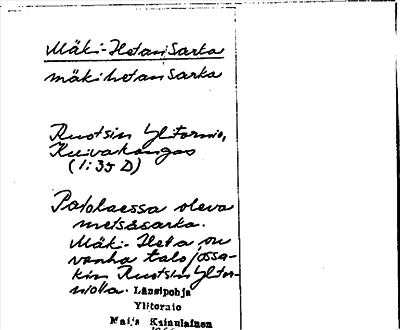 Mäki-Hetan Sarka
mäkihetan sarka
Ruotsin Ylitornio,
Kuivakangas
(1:35 D)
Patokaessa oleva
metsäsarka.
Mäki-Heta on
vanha talo jossa-
kin Ruotsin Ylitor-
niolla. Länsipohja
Ylitornio
Maija Kainulainen